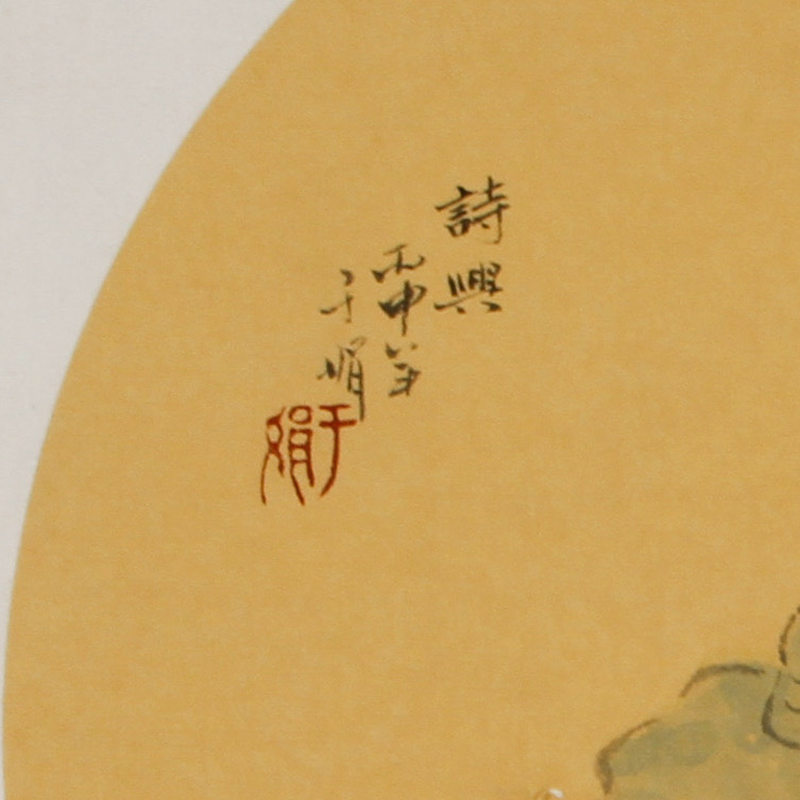 詩興
丙申年
于娟
于娟